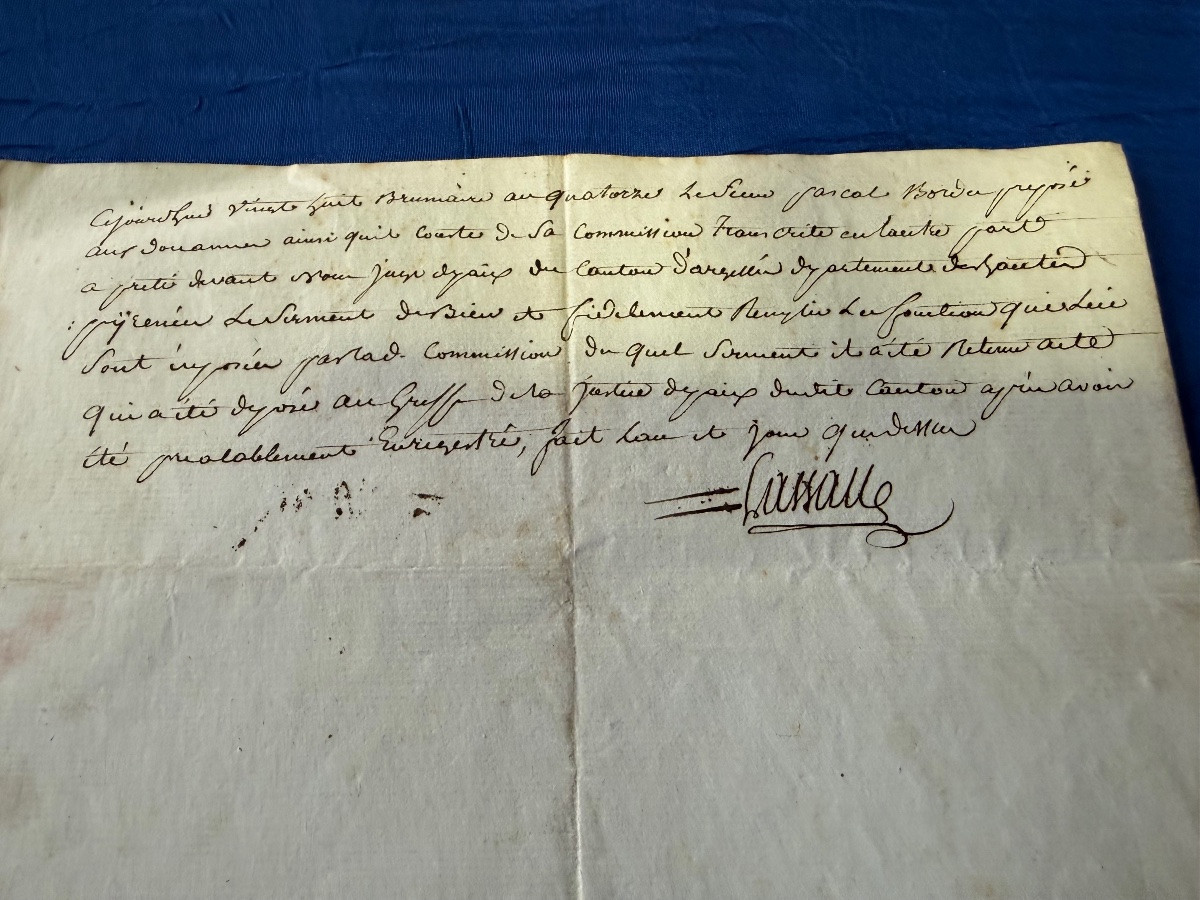 Cejourdhui vingt huit Brumaire an quatorze Le Sieur pascal Bordeu preposé
aux douannes ainsi quil conste de Sa Commission Transcrite en lautre part
a preté devant Nous juge depaix du Canton d'argellés departement des hautes
pÿrenées Le Serment de Bien et fidelement Remplir Les fonctions qui Lui
Sont imposées par lad. Commission du quel Serment il a été Retenu acte
qui a été deposé au Greffe de la justice depaix dudit Canton aprés avoir
été prealablement Enregestré, fait Lan et jour que dessus
Lassalle